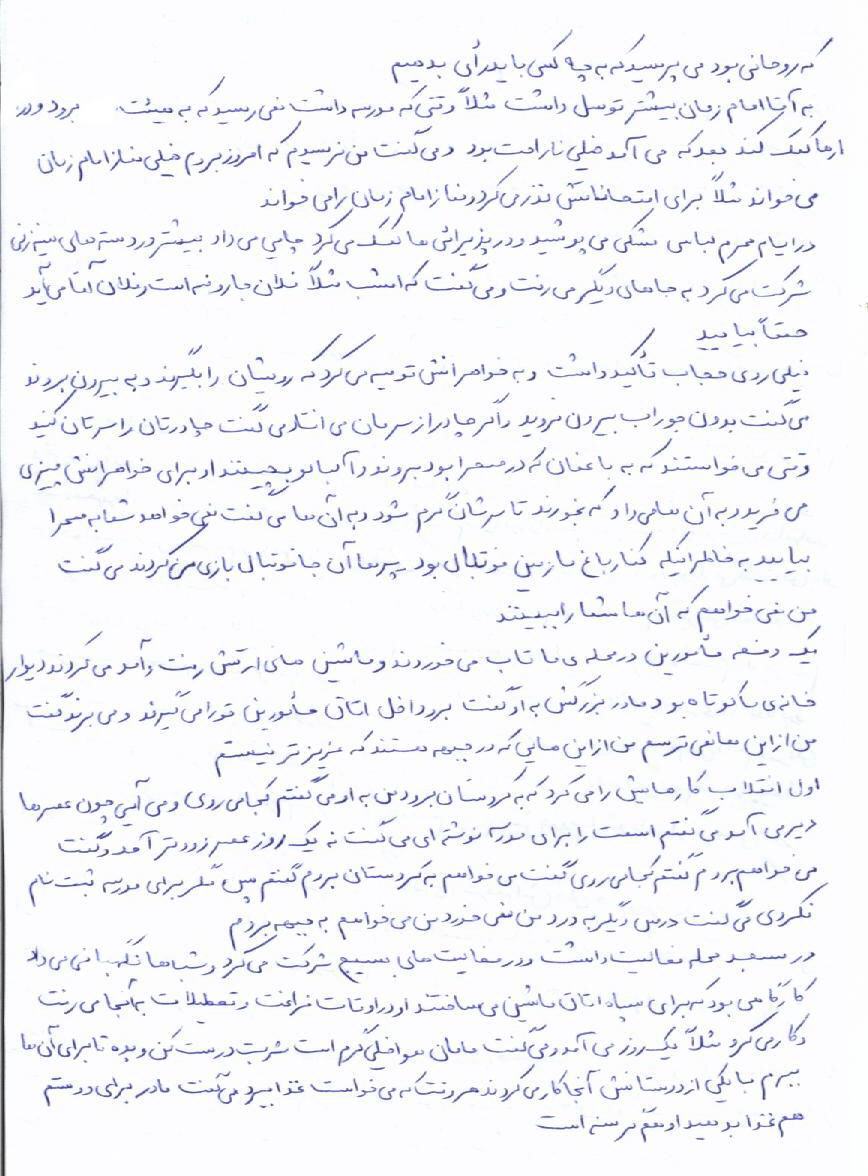 که روحانی بود می پرسید که به چه کسی باید رأی بدهیم
به آقا امام زمان بیشتر توسل داشت مثلاً وقتی که مدرسه داشت نمی رسید که به هیئت برود و در
ارها کمک کند بعد که می آمد خیلی ناراحت بود و می گفت من نرسیدم که امروز بروم خیلی نماز امام زمان
می خواند مثلاً برای امتحاناتش نذر می کرد و نماز امام زمان را می خواند
در ایام محرم لباس مشکی می پوشید و در پذیرائی ها کمک می کرد چایی می داد بیشتر در دسته های سینه زنی
شرکت می کرد به جاهای دیگر می رفت و می گفت که امشب مثلاً فلان جا روضه است و فلان آقا می آید
حتماً بیایید
خیلی روی حجاب تأکید داشت و به خواهرانش توصیه می کرد که رویشان را بگیرند و به بیرون بروند
می گفت بدون جوراب بیرون نروید و اگر چادر از سرمان می افتاد می گفت چادرتان را سرتان کنید
وقتی می خواستند که به باغمان که در صحرا بود بروند و آلبالو بچینند او برای خواهرانش چیزی
می خرید و به آن ها می داد که بخورند تا سرشان گرم شود و به آن ها می گفت نمی خواهد شما به صحرا
بیایید به خاطر اینکه کنار باغ ما زمین فوتبال بود پسرها آن جا فوتبال بازی می کردند می گفت
من نمی خواهم که آن ها شما را ببینند
یک دفعه مأمورین در محله ی ما تاب می خوردند و ماشین های ارتش رفت و آمد می کردند دیوار
خانه ی ما کوتاه بود مادر بزرگش به او گفت برو داخل اتاق مأمورین تو را می گیرند و می برند گفت
من از این ها نمی ترسم من از این هایی که در جبهه هستند که عزیزتر نیستم
اول انقلاب کارهایش را می کرد که به کردستان برود من به او می گفتم کجا می روی و می آیی چون عصرها
دیر می آمد می گفتم اسمت را برای مدرسه نوشته ای می گفت نه یک روز عصر زودتر آمد و گفت
می خواهم بروم گفتم کجا می روی گفت می خواهم به کردستان بروم گفتم پس مگر برای مدرسه ثبت نام
نکردی می گفت درس دیگر به درد من نمی خورد من می خواهم به جبهه بروم
در مسجد محله فعالیت داشت و در فعالیت های بسیج شرکت می کرد و شب ها نگهبانی می داد
کارگاهی بود که برای سپاه اتاق ماشین می ساختند او در اوقات فراغت و تعطیلات به آنجا می رفت
و کار می کرد مثلاً یک روز می آمد و می گفت مامان هوا خیلی گرم است شربت درست کن و بده تا برای آن ها
ببرم با یکی از دوستانش آنجا کار می کردند هر وقت که می خواست غذا ببرد می گفت مادر برای دوستم
هم غذا بدهید او هم گرسنه است